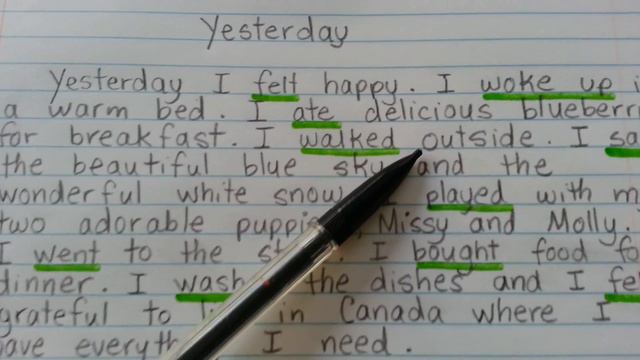 Yesterday
Yesterday I felt happy. I woke up
a warm bed. I ate delicious
for breakfast. I walked outside. I
the beautiful blue sky and the
wonderful white snow. I played with
two adorable Missy and Molly.
I went to the I bought food
dinner. I the dishes and I
grateful to in Canada where I
I need.